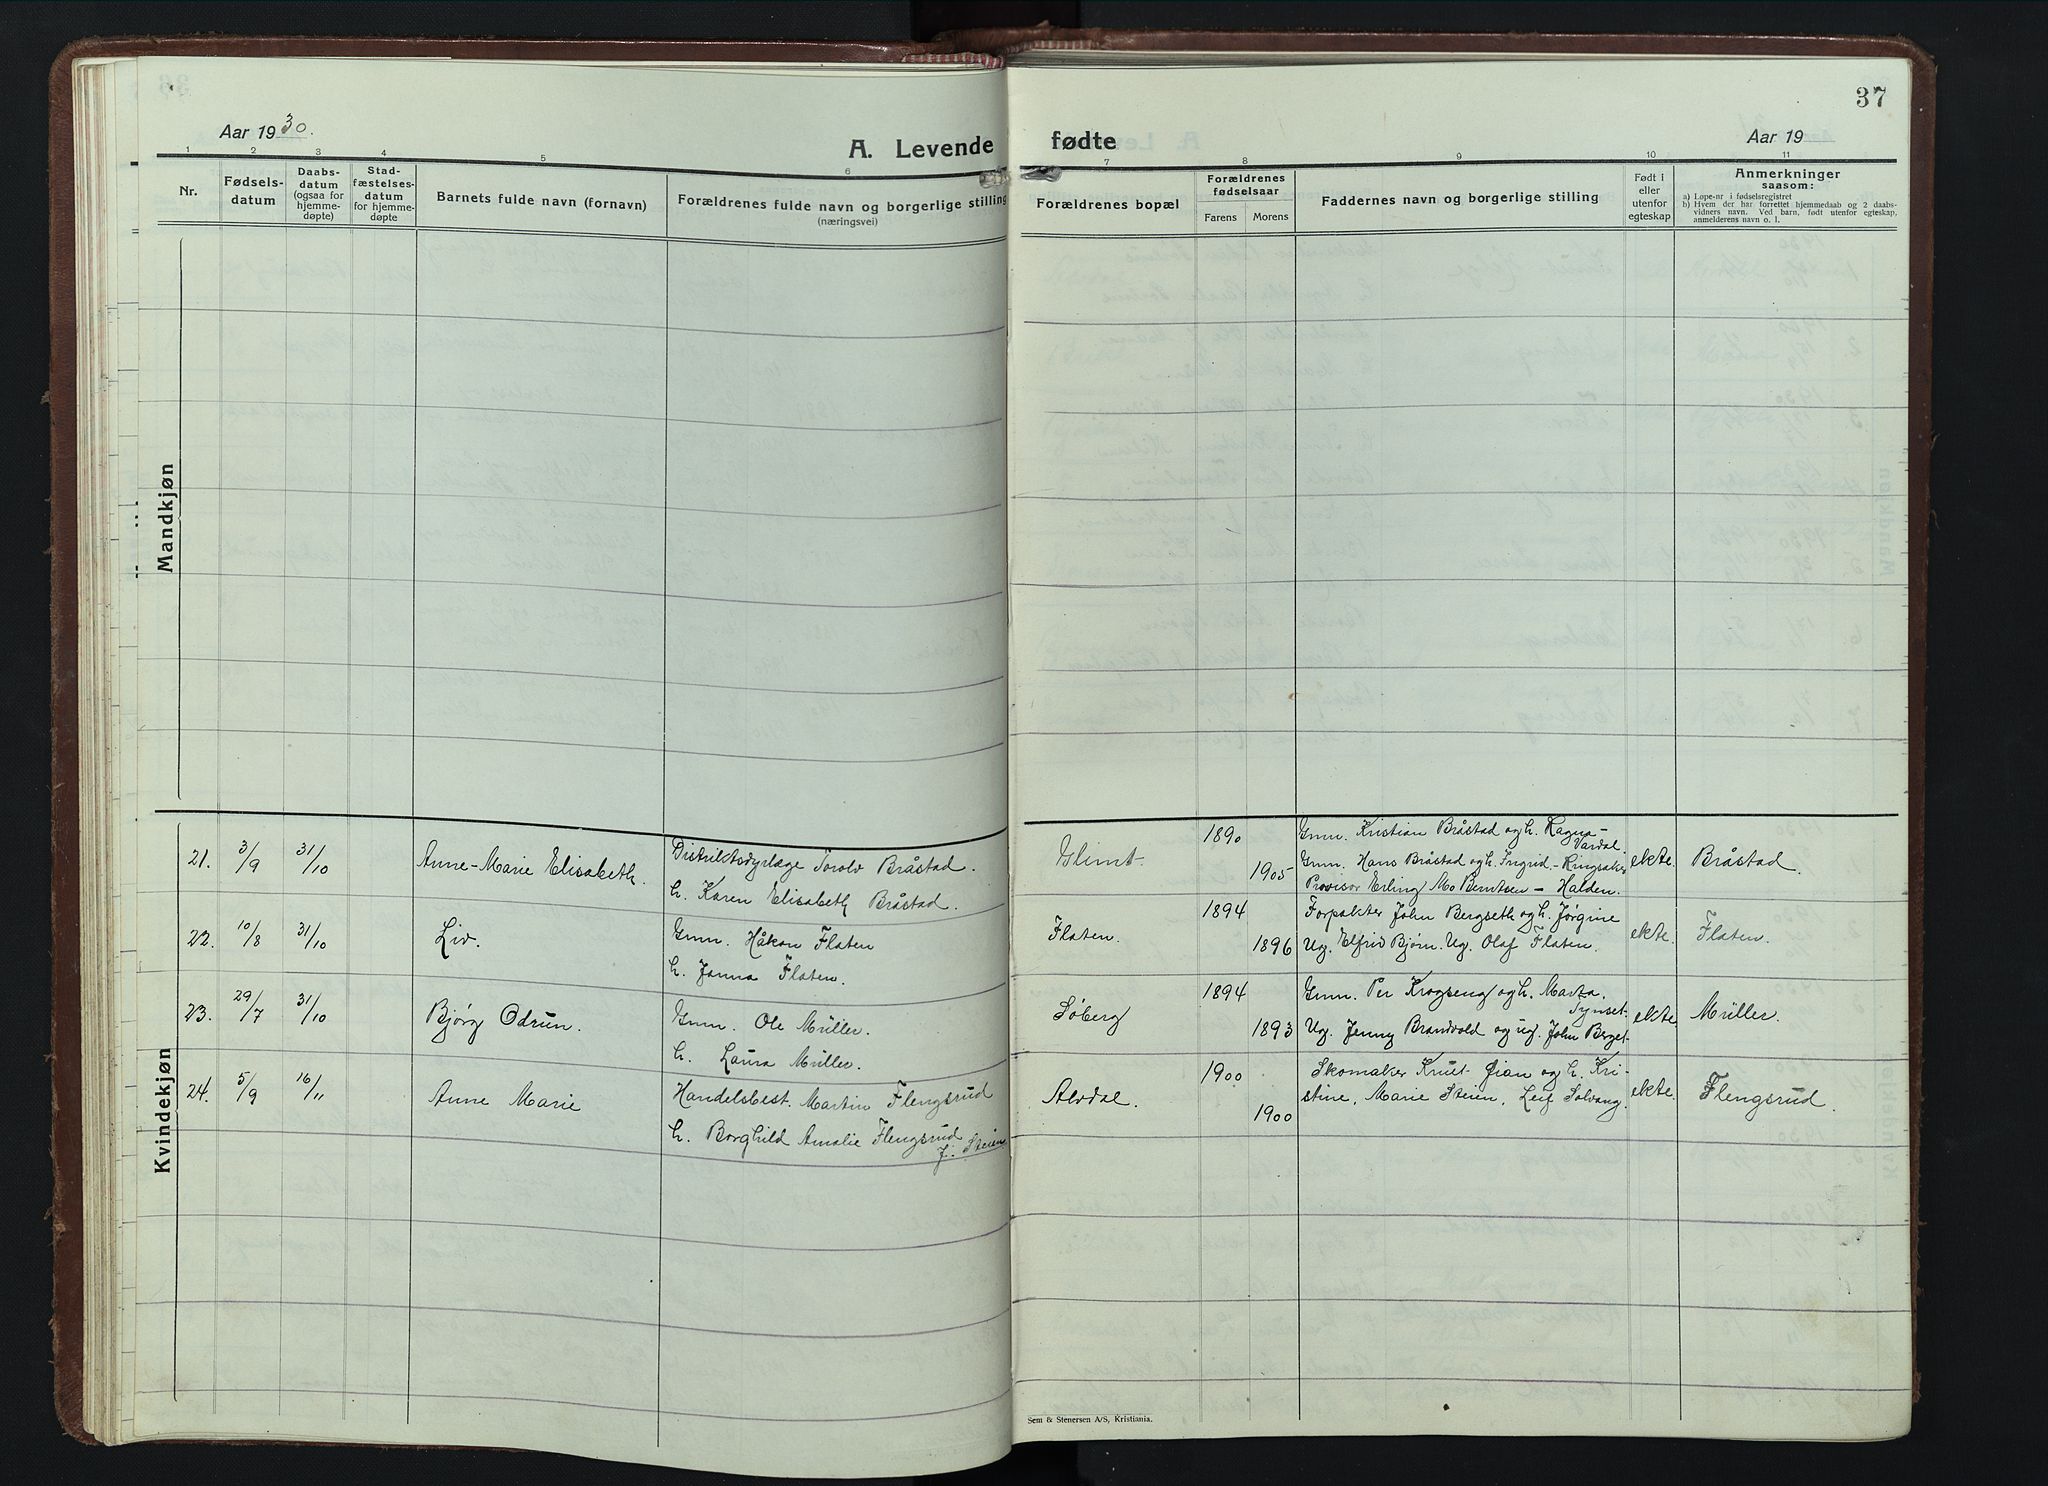 37
Aar 1930.
A. Levende fødte
Aar 19
1 2 3 4 5 6 7 8 9 10 11
Nr.
Fødsels-
datum
Daabs-
datum
(ogsaa for
hjemme-
døpte)
Stad-
fæstelses-
datum
for hjemme-
døpte
Barnets fulde navn (fornavn)
Forældrenes fulde navn og borgerlige stilling
(næringsvei)
Forældrenes bopæl
Forældrenes
fødselsaar
Farens Morens
Faddernes navn og borgerlige stilling
Født i
eller
utenfor
egteskap
Anmerkninger
saasom:
a) Løpe-nr i fødselsregistret
b) Hvem der har forrettet hjemmedaab og 2 daabs-
vidners navn. Ved barn, født utenfor egteskap,
anmelderens navn o. l.
Mandkjøn
Kvindekjøn
21. 3/9 31/10 Anne-Marie Elisabeth. Distriktsdyrlæge Torolv Bråstad.
h. Karen Elisabeth Bråstad.
Glimt. 1890 1905
Gmn. Kristian Bråstad og h. Ragna-
Vardal
Gmn. Hans Bråstad og h. Ingrid.- Ringsaker
Provisor Erling Mo Berntsen - Halden.
ekte. Bråstad.
22. 10/8 31/10 Liv. Gmn. Håkon Flaten
h. Janna Flaten.
Flaten. 1894 1896
Forpakter John Bergseth og h. Jørgine
Ug. Elfrid Bjørn. Ug. Olaf Flaten.
ekte. Flaten.
23. 29/7 31/10 Bjørg Odrun. Gmn. Ole Müller.
h. Laura Müller.
Søberg 1894 1893
Gmn. Per Krogseng og h. Marta.
Tynset-
Ug. Jenny Brandvold og ug. John Berget-
ekte. Müller.
24. 5/9 16/11 Anne Marie Handelsbest. Martin Flengsrud
h. Borghild Amalie Flengsrud
f. Steien
Alvdal. 1900 1900
Skomaker Knut Jian og h. Kri-
stine, Marie Steien, Leif Solvang.
ekte. Flengsrud.
Sem & Stenersen A/S, Kristiania.